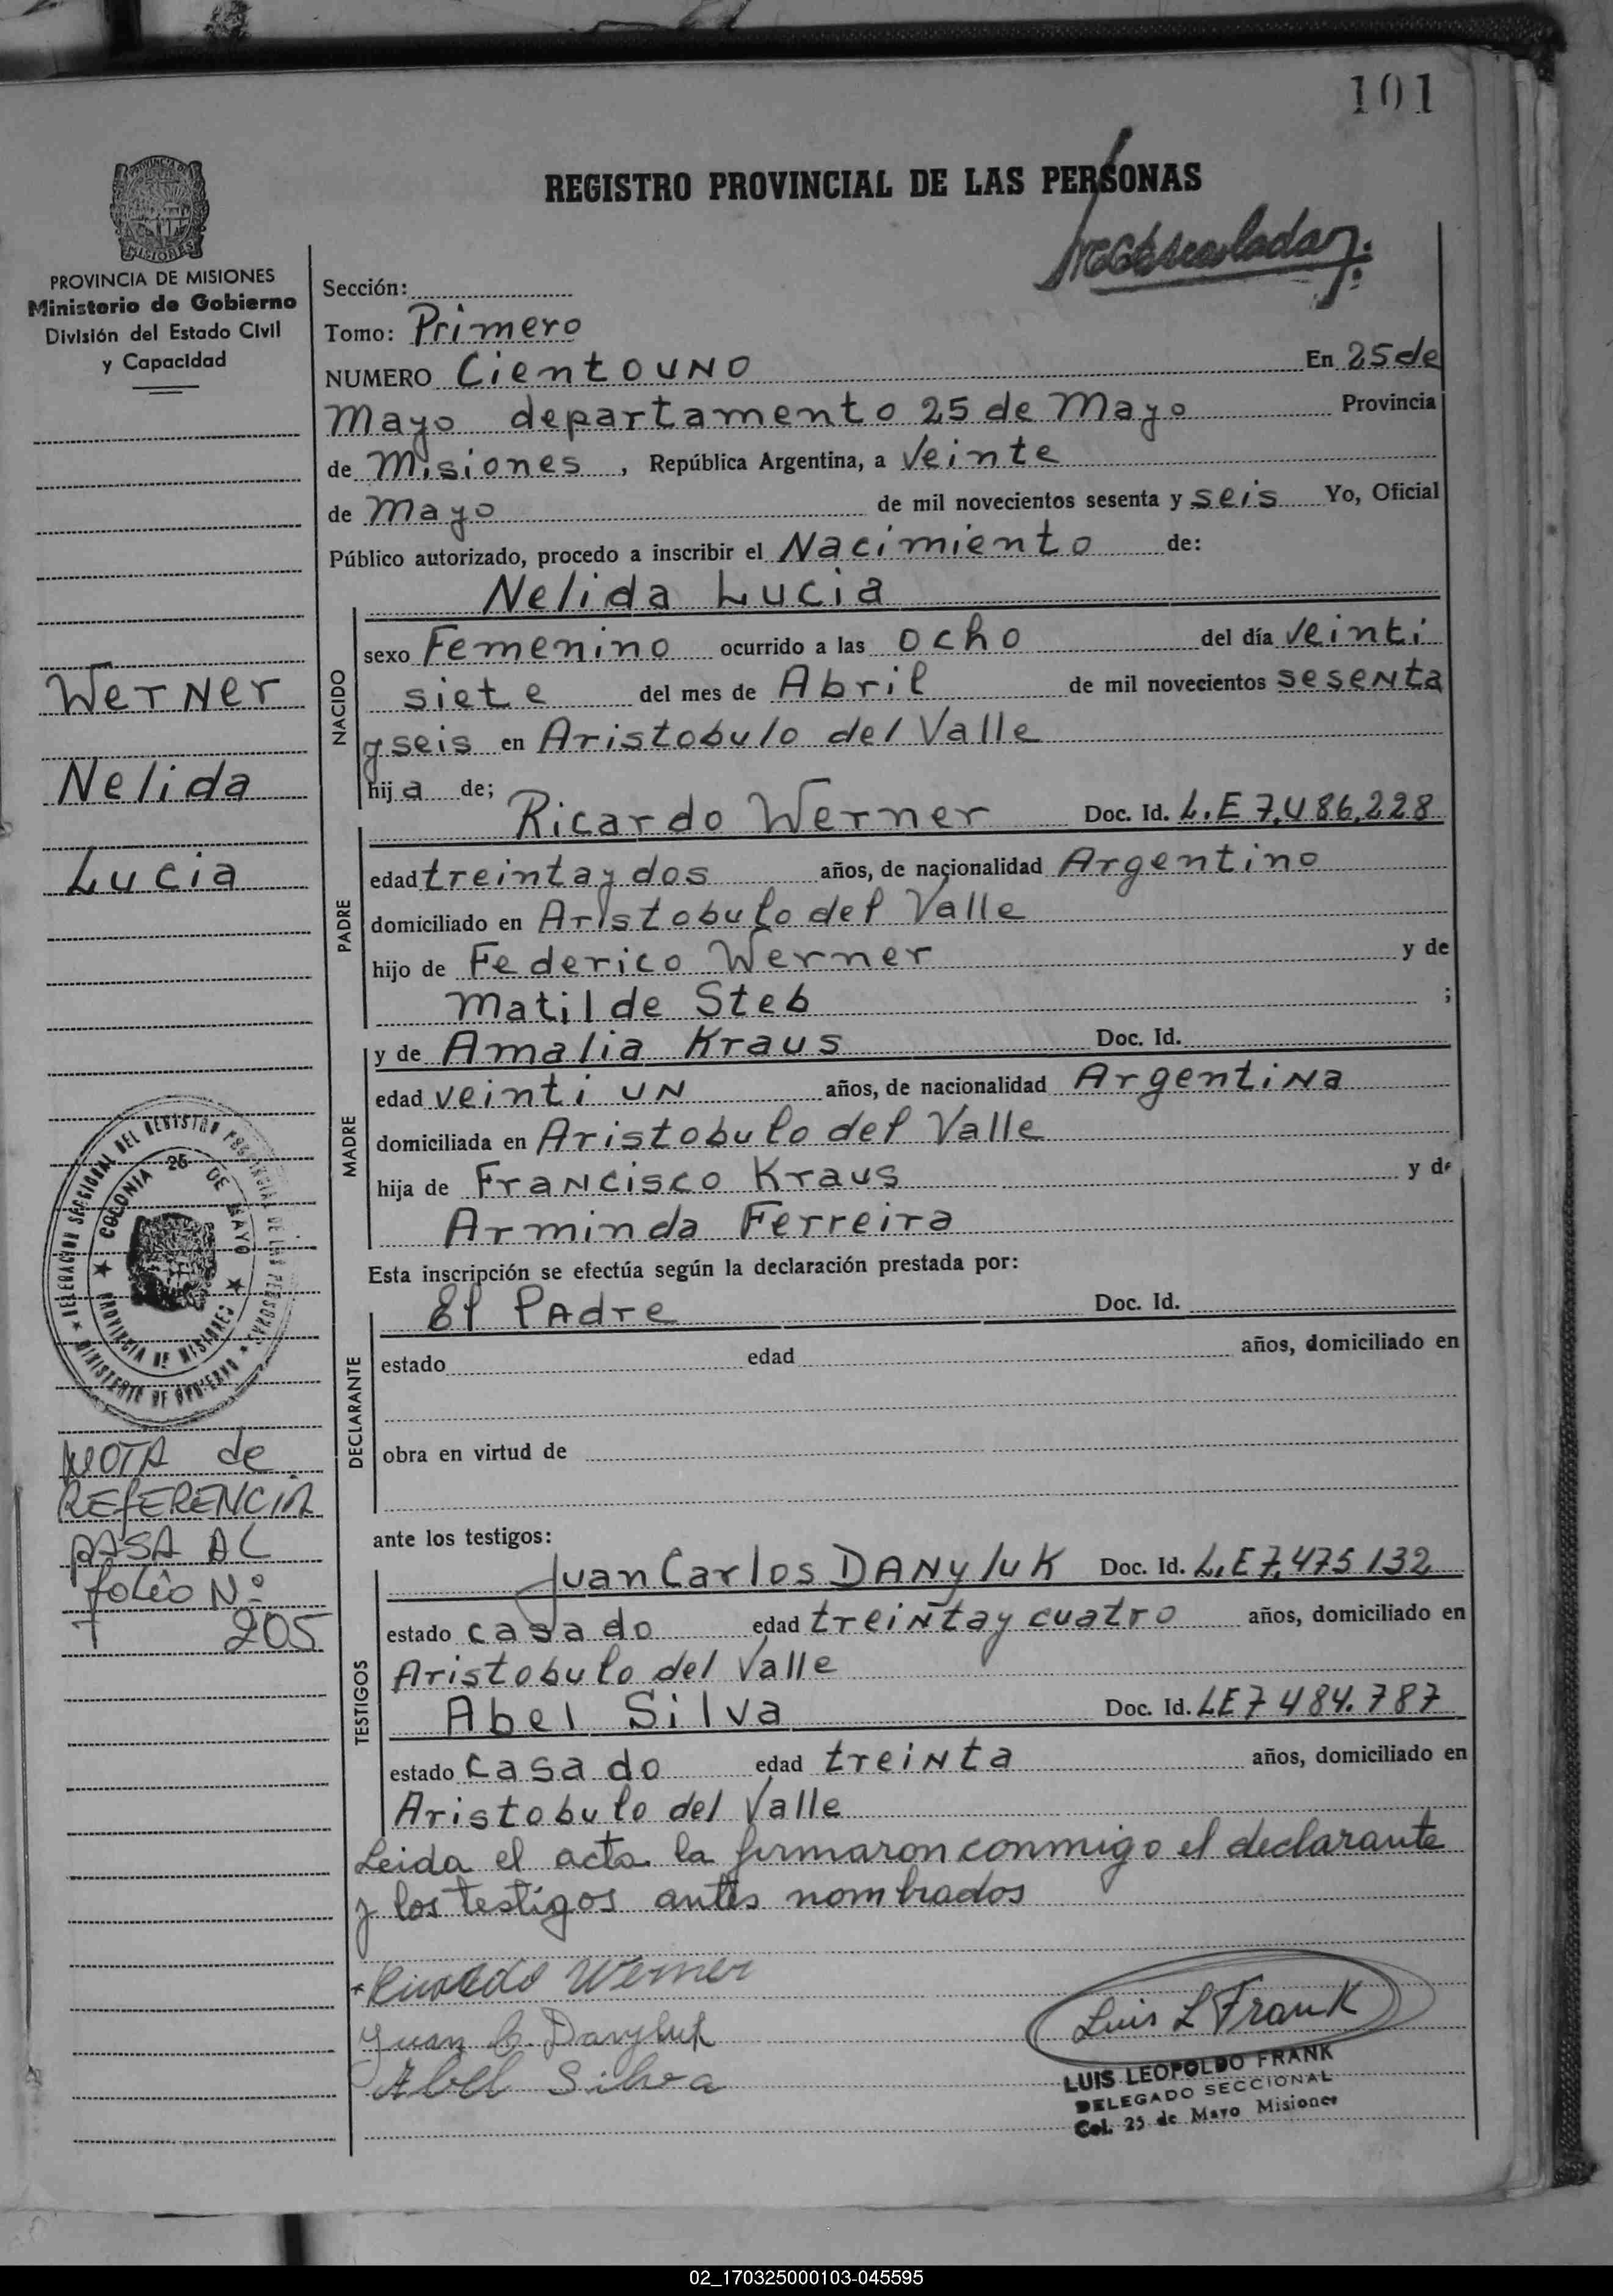 101
REGISTRO PROVINCIAL DE LAS PERSONAS
PROVINCIA DE MISIONES
Ministerio de Gobierno
División del Estado Civil
y Capacidad
Werner
Nelida
Lucia
DELEGACION SECCIONAL DEL REGISTRO PROVINCIAL DE LAS PERSONAS
COLONIA 25 DE MAYO
PROVINCIA DE MISIONES
NOTA de
REfERENCIA
PASA AL
folio Nº
205
Sección:
Tomo: Primero
NUMERO Ciento uno En 25 de
Mayo departamento 25 de Mayo Provincia
de Misiones, República Argentina, a Veinte
de Mayo de mil novecientos sesenta y seis Yo, Oficial
Público autorizado, procedo a inscribir el Nacimiento de:
NACIDO
Nelida Lucia
sexo Femenino ocurrido a las ocho del día veinti
siete del mes de Abril de mil novecientos sesenta
y seis en Aristobulo del Valle
hija de;
PADRE
Ricardo Werner Doc. Id. L.E 7,486,228
edad treinta y dos años, de nacionalidad Argentino
domiciliado en Aristobulo del Valle
hijo de Federico Werner y de
Matilde Steb ;
MADRE
y de Amalia Kraus Doc. Id.
edad veinti un años, de nacionalidad Argentina
domiciliada en Aristobulo del Valle
hija de Francisco Kraus y de
Arminda Ferreira
Esta inscripción se efectúa según la declaración prestada por:
DECLARANTE
El Padre Doc. Id.
estado edad años, domiciliado en
obra en virtud de
ante los testigos:
TESTIGOS
Juan Carlos DANyluk Doc. Id. L.E 7,475 132
estado casado edad treinta y cuatro años, domiciliado en
Aristobulo del Valle
Abel Silva Doc. Id. LE 7 484.787
estado casado edad treinta años, domiciliado en
Aristobulo del Valle
Leida el acta la firmaron conmigo el declarante
y los testigos antes nombrados
Ricardo Werner
Juan C. Danyluk
Abel Silva
Luis L Frank
LUIS LEOPOLDO FRANK
DELEGADO SECCIONAL
Col. 25 de Mayo Misiones
02_170325000103-045595